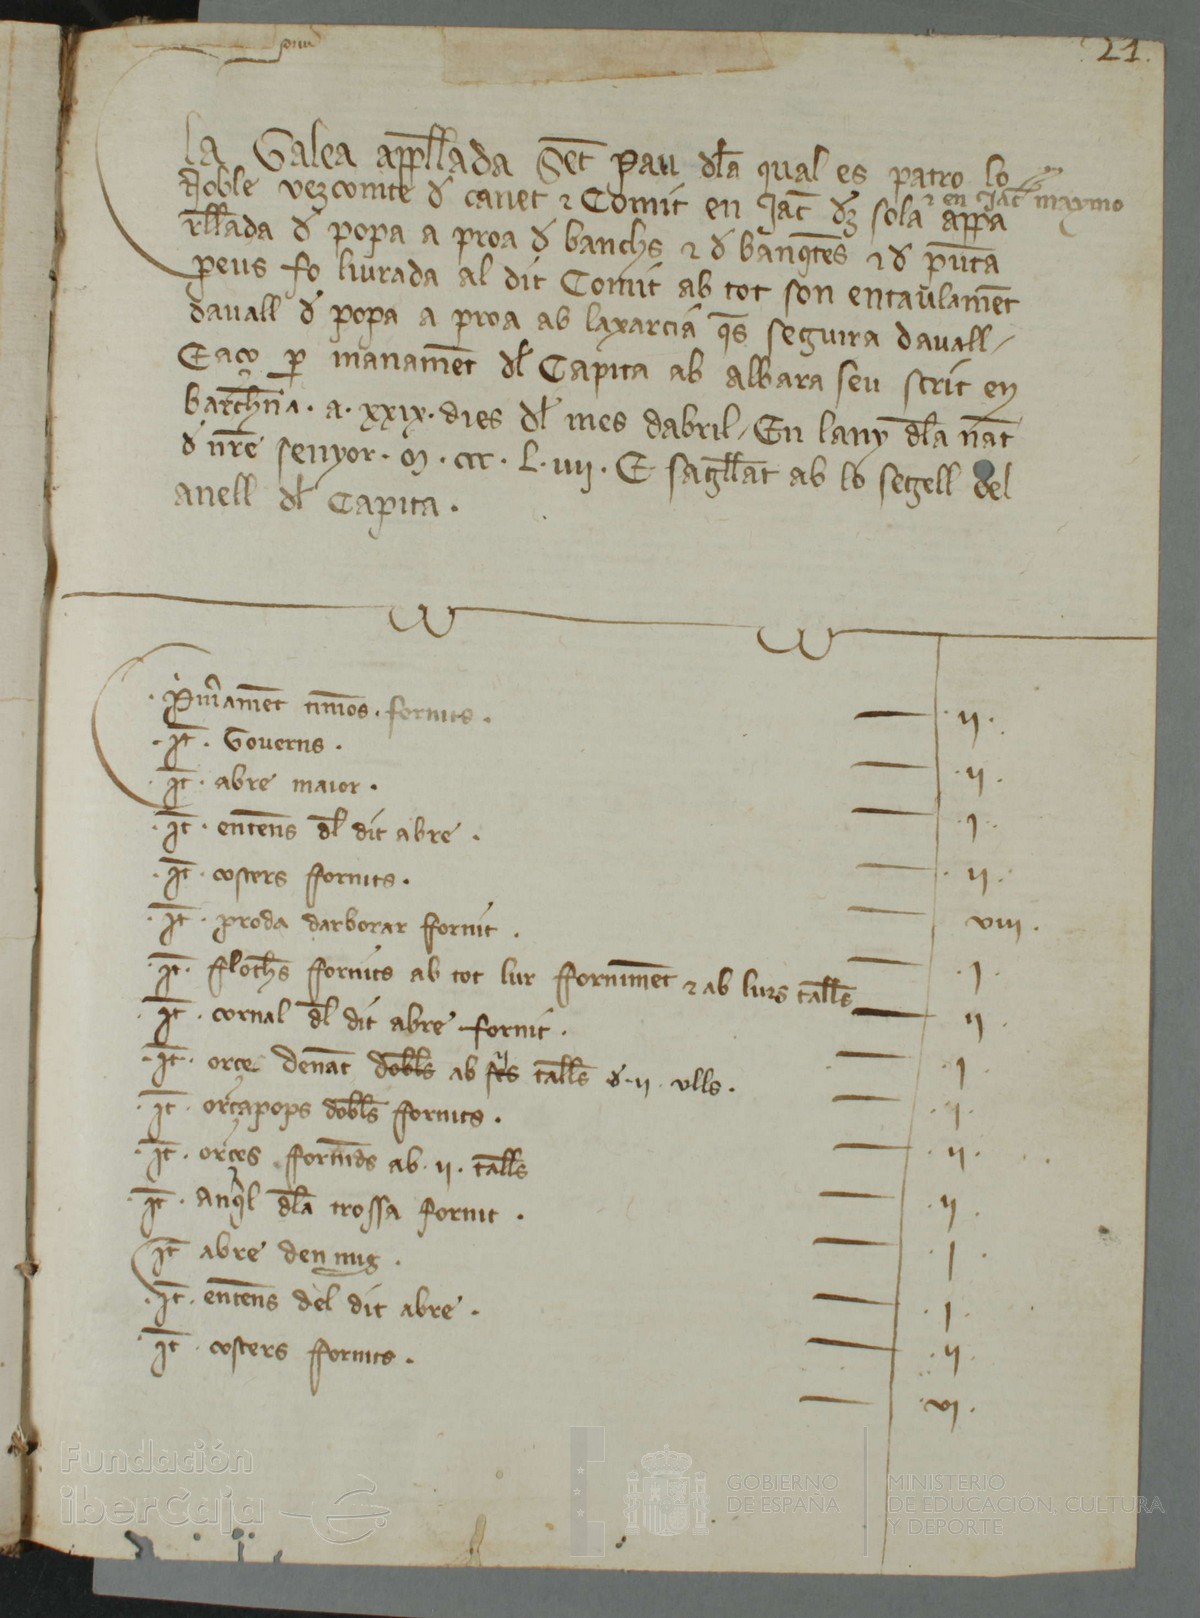 21.
la Galea appellada Sēt Pau dl̄a qual es patro lo
Noble vezcomte d̄ canet ⁊ Comit en Jac̄ dz̄ sola appa
⁊ en Jac̄ maymo
rellada d̄ popa a proa d̄ banchs ⁊ d̄ banqt̄es ⁊ d̄ pūta
peus fo liurada al dit Comit ab tot son entaulamēt
dauall d̄ popa a proa ab laxarcia q̄s seguira dauall /
E aço p̱ manamēt dl̄ Capita ab albara seu scrit en
barch̄na · a · xxix · dies dl̄ mes dabril / En lany dl̄a nat̄
d̄ nr̄e senyor · M · ccc · L · iiij · E sagll̄at ab lo segell del
anell dl̄ Capita ·
· P̄mˀamēt timōs · fornits · ij ·
· It̄ · Gouerns · ij ·
· It̄ · abre maior · j ·
· It̄ · entēns dl̄ dit abre · ij ·
· It̄ · costers fornits · viij ·
· It̄ · proda darborar fornit · j ·
· It̄ · flotch̄s fornits ab tot lur fornimēt ⁊ ab lurs tall̄s ij ·
· It̄ · cornal dl̄ dit abre fornit · j ·
· It̄ · orce denāt dobl̄s ab tall̄s d̄ · ij · vlls · j ·
· It̄ · orçapops dobl̄s fornits · ij ·
· It̄ · orçes fornid̄s ab · ij · tall̄s ij ·
· It̄ · Anq̄l dl̄a trossa fornit · j
It̄ abre den mig · j ·
· It̄ · entēns del dit abre · ij ·
· It̄ · costers fornits · vj ·
Fundación
iberCaja
GOBIERNO
DE ESPAÑA
MINISTERIO
DE EDUCACIÓN, CULTURA
Y DEPORTE